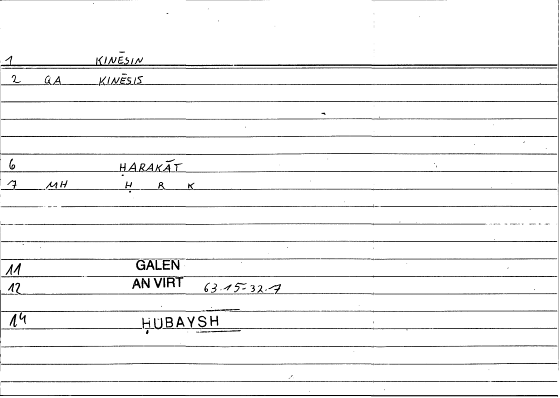 1 KINĒSIN
2 GA KINĒSIS
6 ḤARAKĀT
7 MH Ḥ R K
11 GALEN
12 AN VIRT 63.15-32.7
14 ḤUBAYSH